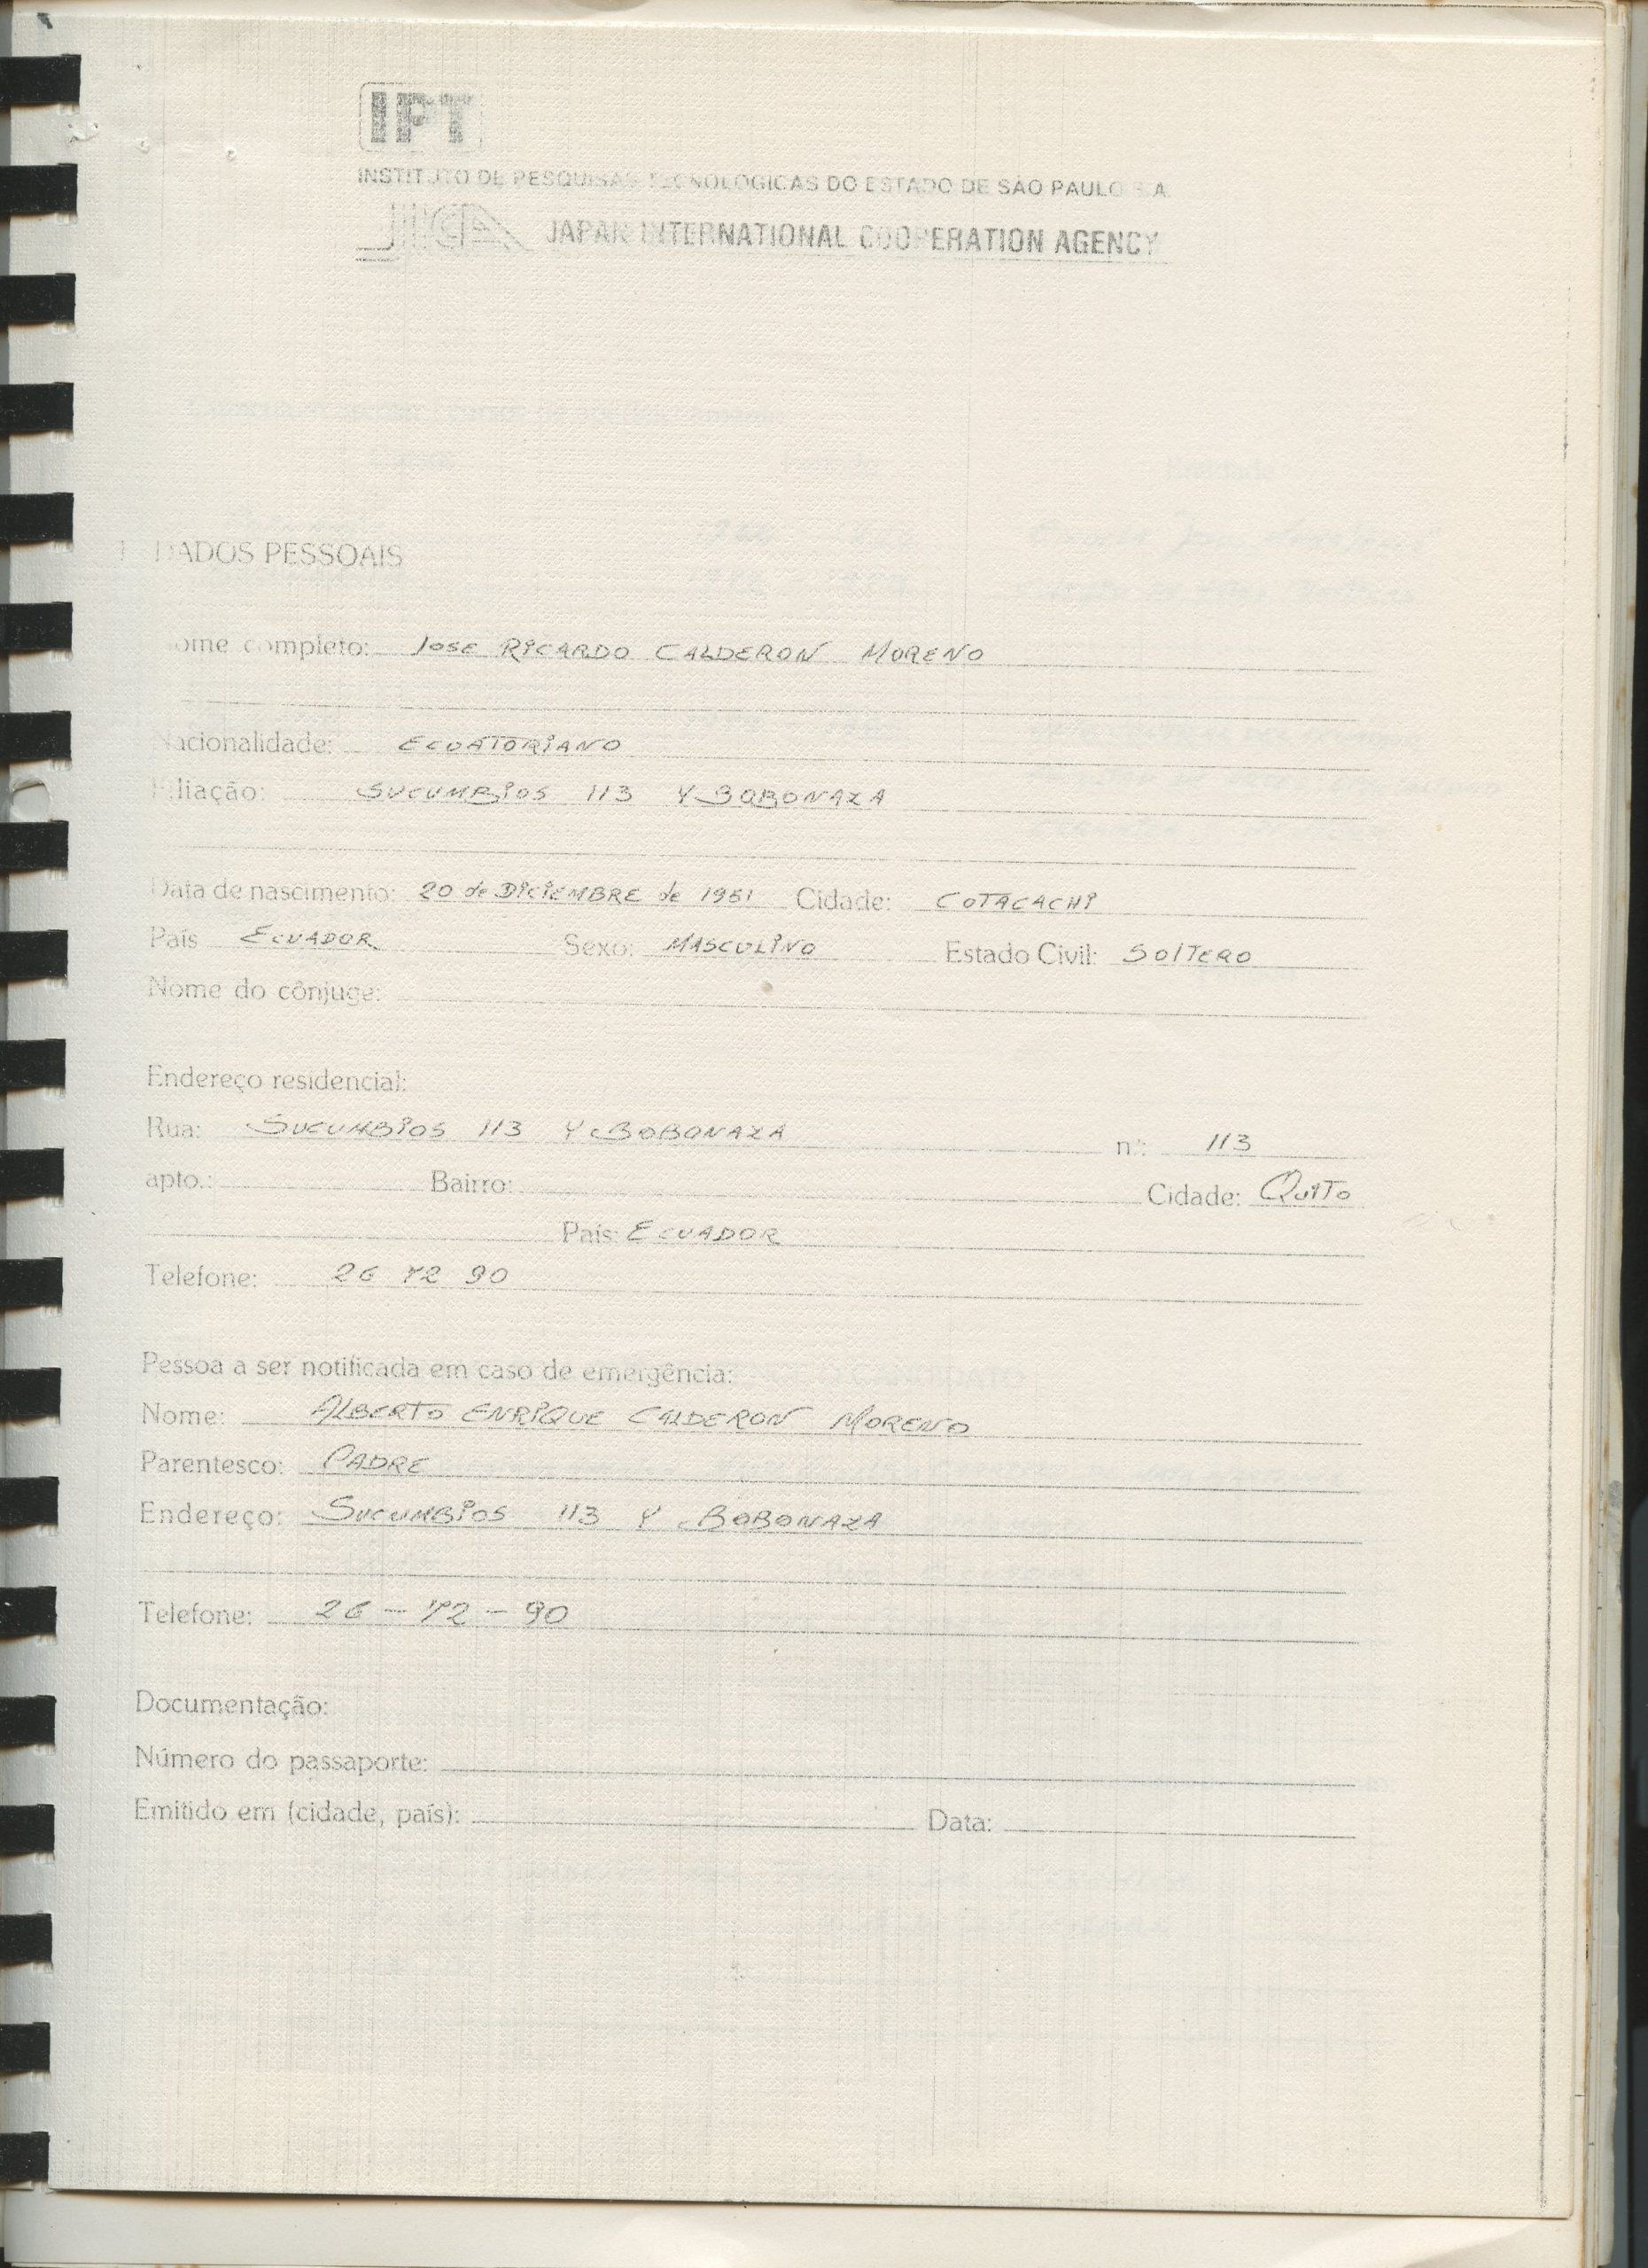 IPT
INSTITUTO DE PESQUISAS TECNOLOGICAS DO ESTADO DE SÃO PAULO S.A.
JICA JAPAN INTERNATIONAL COOPERATION AGENCY
1 DADOS PESSOAIS
Nome completo: JOSE RICARDO CALDERON MORENO
Nacionalidade: ECUATORIANO
Filiação: SUCUMBIOS 113 Y BOBONAZA
Data de nascimento: 20 de DICIEMBRE de 1961 Cidade: COTACACHI
País ECUADOR Sexo: MASCULINO Estado Civil: SOLTERO
Nome do cônjuge:
Endereço residencial:
Rua: SUCUMBIOS 113 Y BOBONAZA nº: 113
apto.: Bairro: Cidade: QUITO
País: ECUADOR
Telefone: 26 72 90
Pessoa a ser notificada em caso de emergência:
Nome: ALBERTO ENRIQUE CALDERON MORENO
Parentesco: PADRE
Endereço: SUCUMBIOS 113 Y BOBONAZA
Telefone: 26-72-90
Documentação:
Número do passaporte:
Emitido em (cidade, país): Data: